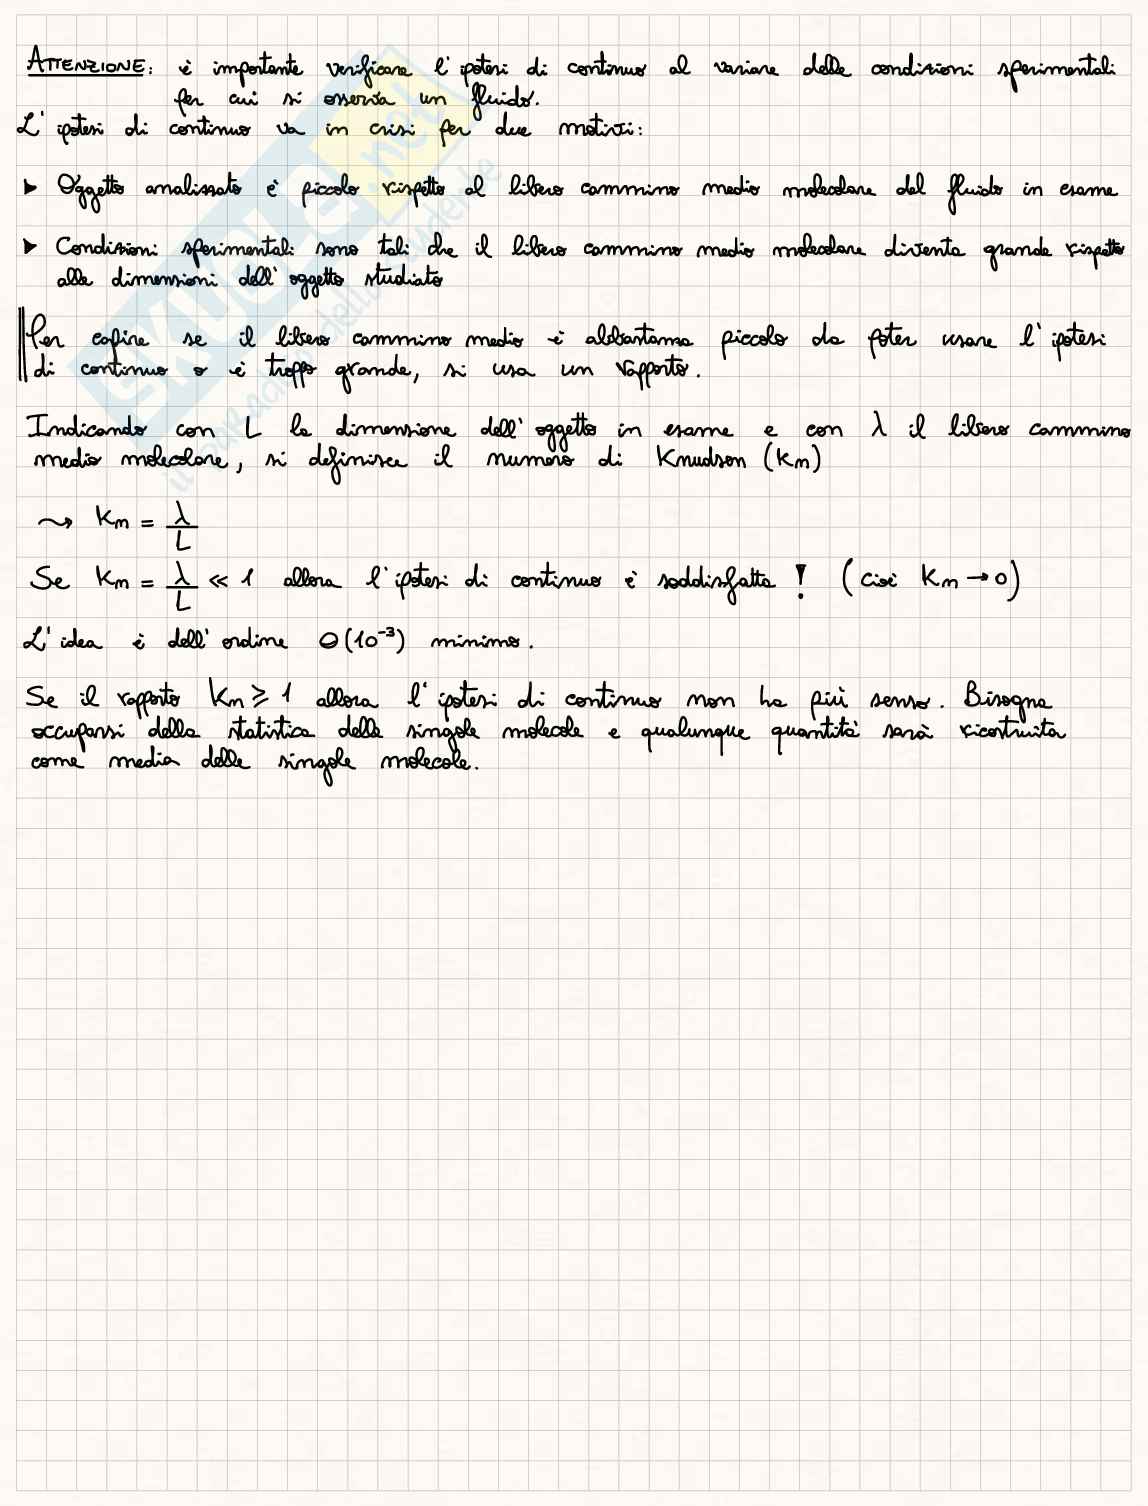 ATTENZIONE: è importante verificare l'ipotesi di continuo al variare delle condizioni sperimentali
per cui si osserva un fluido.
L'ipotesi di continuo va in crisi per due motivi:
➤ Oggetto analizzato è piccolo rispetto al libero cammino medio molecolare del fluido in esame
➤ Condizioni sperimentali sono tali che il libero cammino medio molecolare diventa grande rispetto
alle dimensioni dell'oggetto studiato
Per capire se il libero cammino medio è abbastanza piccolo da poter usare l'ipotesi
di continuo o è troppo grande, si usa un rapporto.
Indicando con L la dimensione dell'oggetto in esame e con λ il libero cammino
medio molecolare, si definisce il numero di Knudson (Kn)
⤳ Kn = λ/L
Se Kn = λ/L << 1 allora l'ipotesi di continuo è soddisfatta ! (cioè Kn → 0)
L'idea è dell'ordine Θ(10⁻³) minimo.
Se il rapporto Kn ⩾ 1 allora l'ipotesi di continuo non ha più senso. Bisogna
occuparsi della statistica delle singole molecole e qualunque quantità sarà ricostruita
come media delle singole molecole.
SKUOLA.net